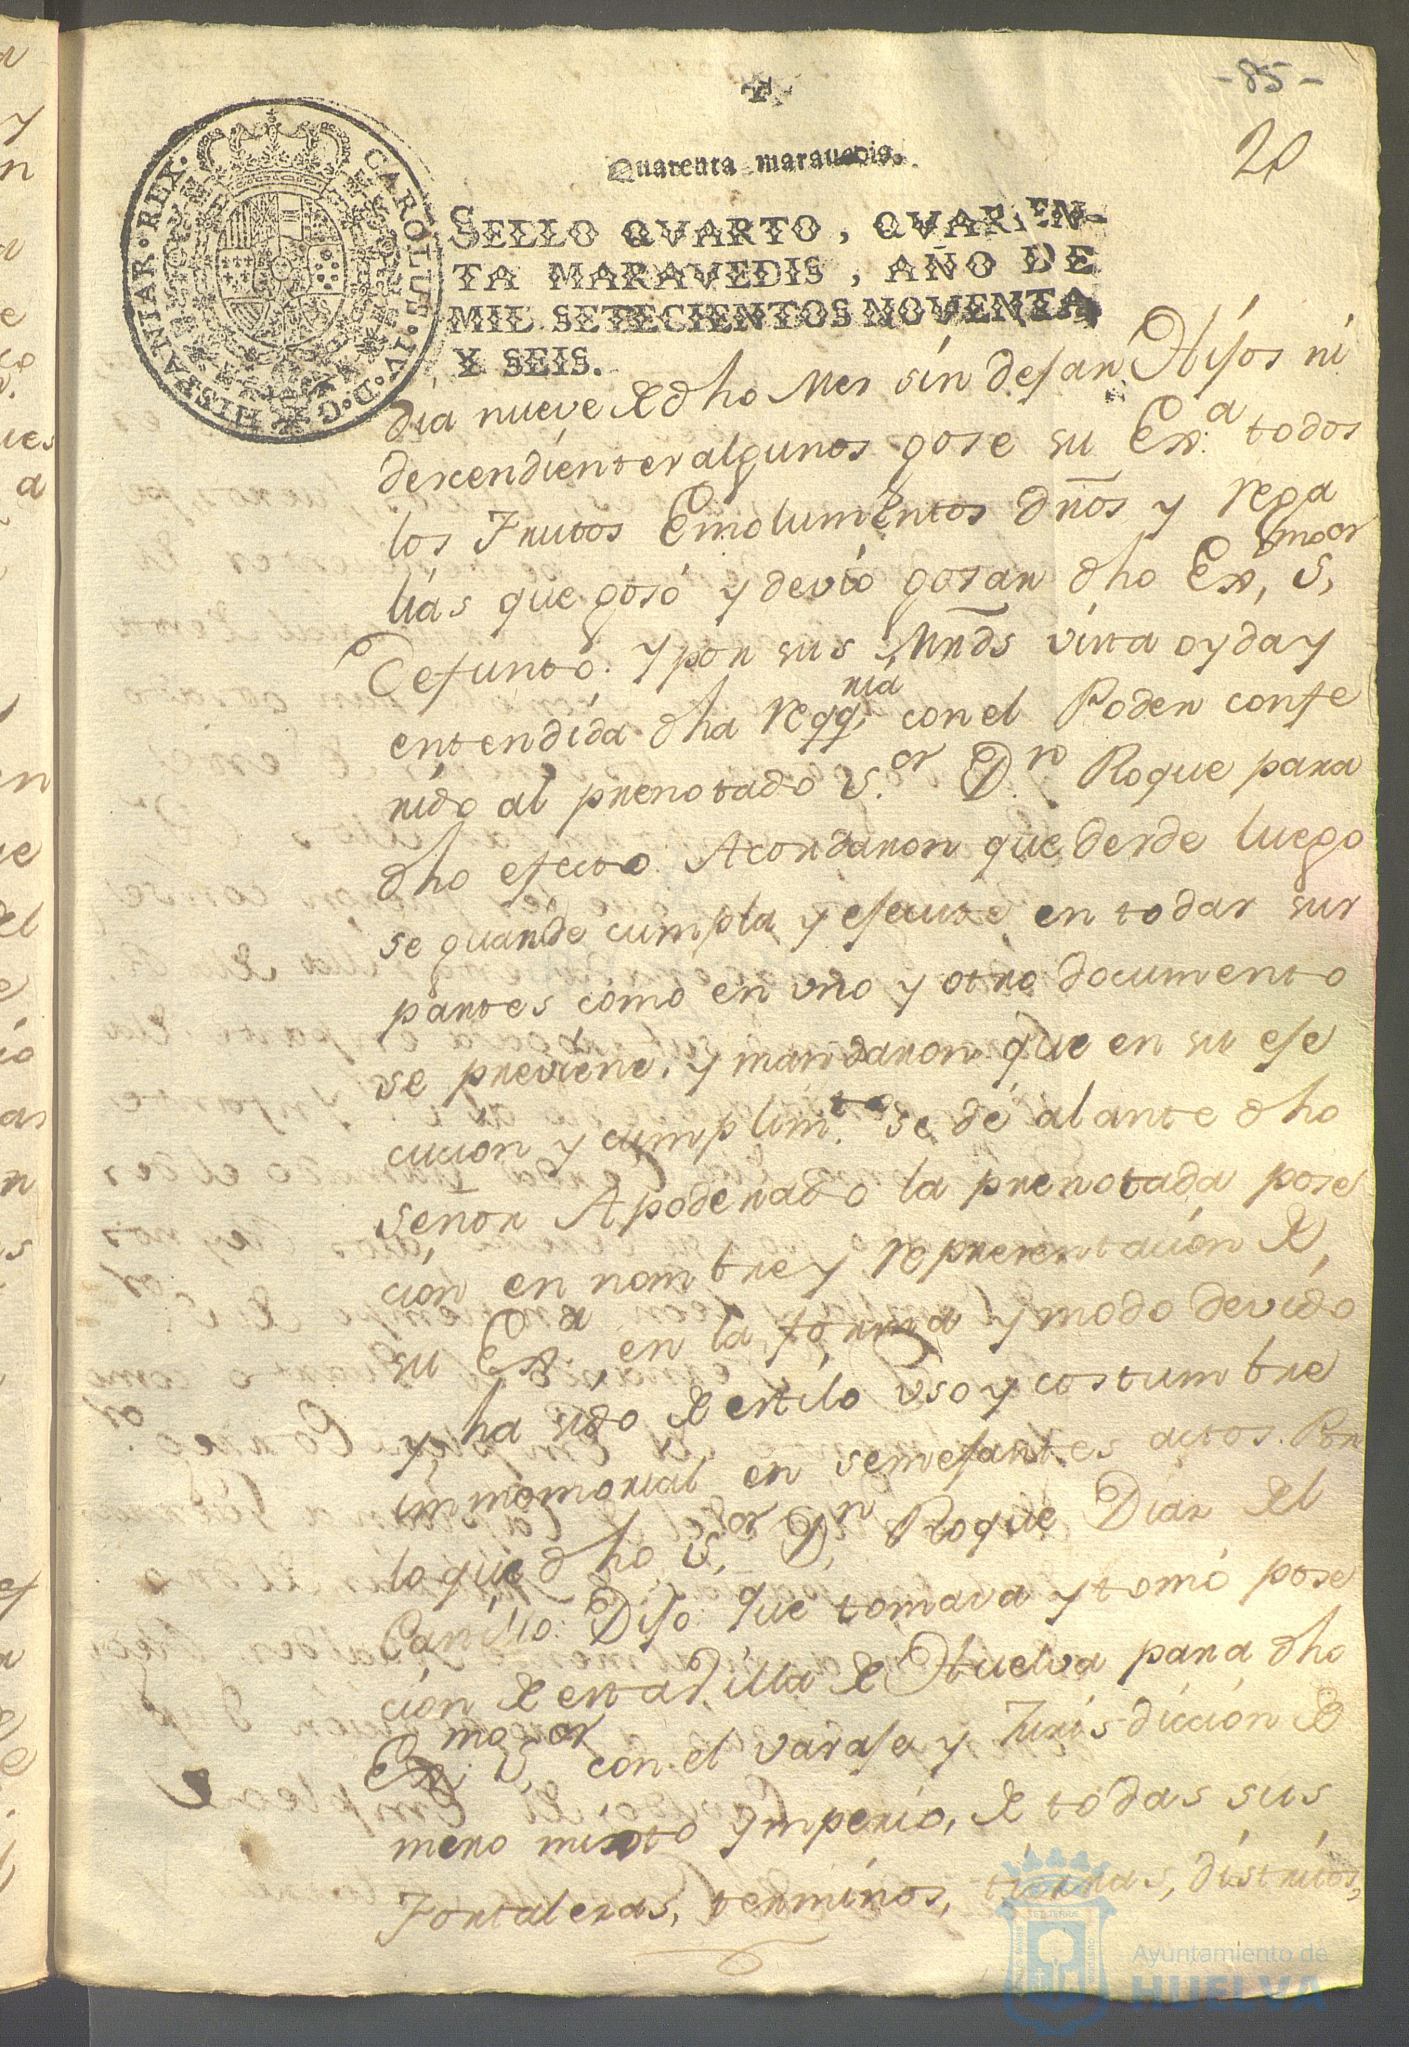 -85-
20
Quarenta maravedis.
CAROLUS·IV·D·G·HISPANIAR·REX·
SELLO QVARTO, QVAREN-
TA MARAVEDIS, AÑO DE
MIL SETECIENTOS NOVENTA
Y SEIS.
dia nueve de dho Mes sin dejar Hijos ni
descendientes algunos gose su Exª todos
los Frutos Emolumentos dros y rega
lias que gosó y devio gosar dho Exmo Sor
Defunto. y por sus Mrds vista oyda y
entendida dha reqqnia con el Poder confe
rido al prenotado Sor Dn Roque para
dho efecto. Acordaron que desde luego
se guarde cumpla y ejecute en todas sus
partes como en uno y otro documento
se previene. y mandaron que en su eje
cucion y cumplimto se dé al ante dho
señor Apoderado la prenotada pose
cion en nombre y representacion de
su Exª en la forma y modo devido
y ha sido de estilo uso y costumbre
immemorial en semejantes actos. Por
lo que dho Sor Dn Roque Diaz del
Dijo: Que tomava y tomó pose
cion de esta Villa de Huelva para dho
Exmo Sor con el varaje y Jurisdiccion de
mero misto ymperio, de todas sus
Fortalezas, terminos, tierras, distritos,
Ayuntamiento de
HUELVA